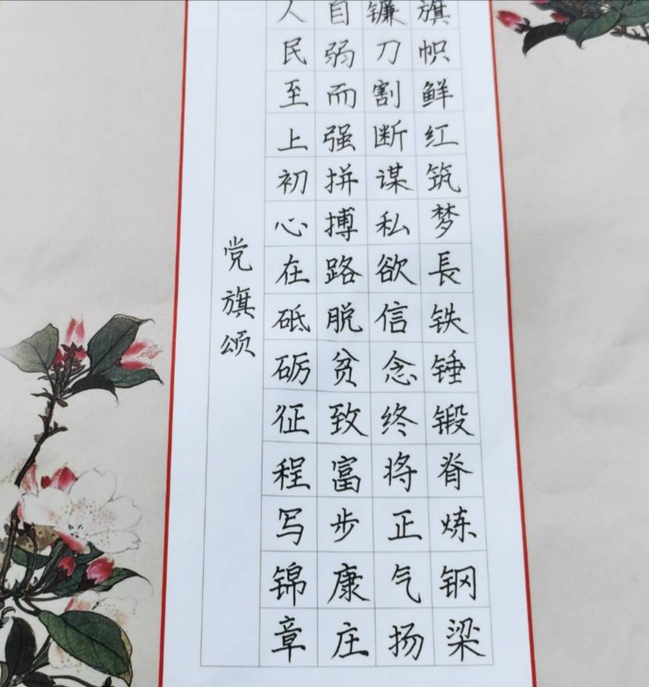 旗帜鲜红筑梦長铁锤锻脊炼钢梁
镰刀割断谋私欲信念终将正气扬
自弱而强拼搏路脱贫致富步康庄
人民至上初心在砥砺征程写锦章
党旗颂